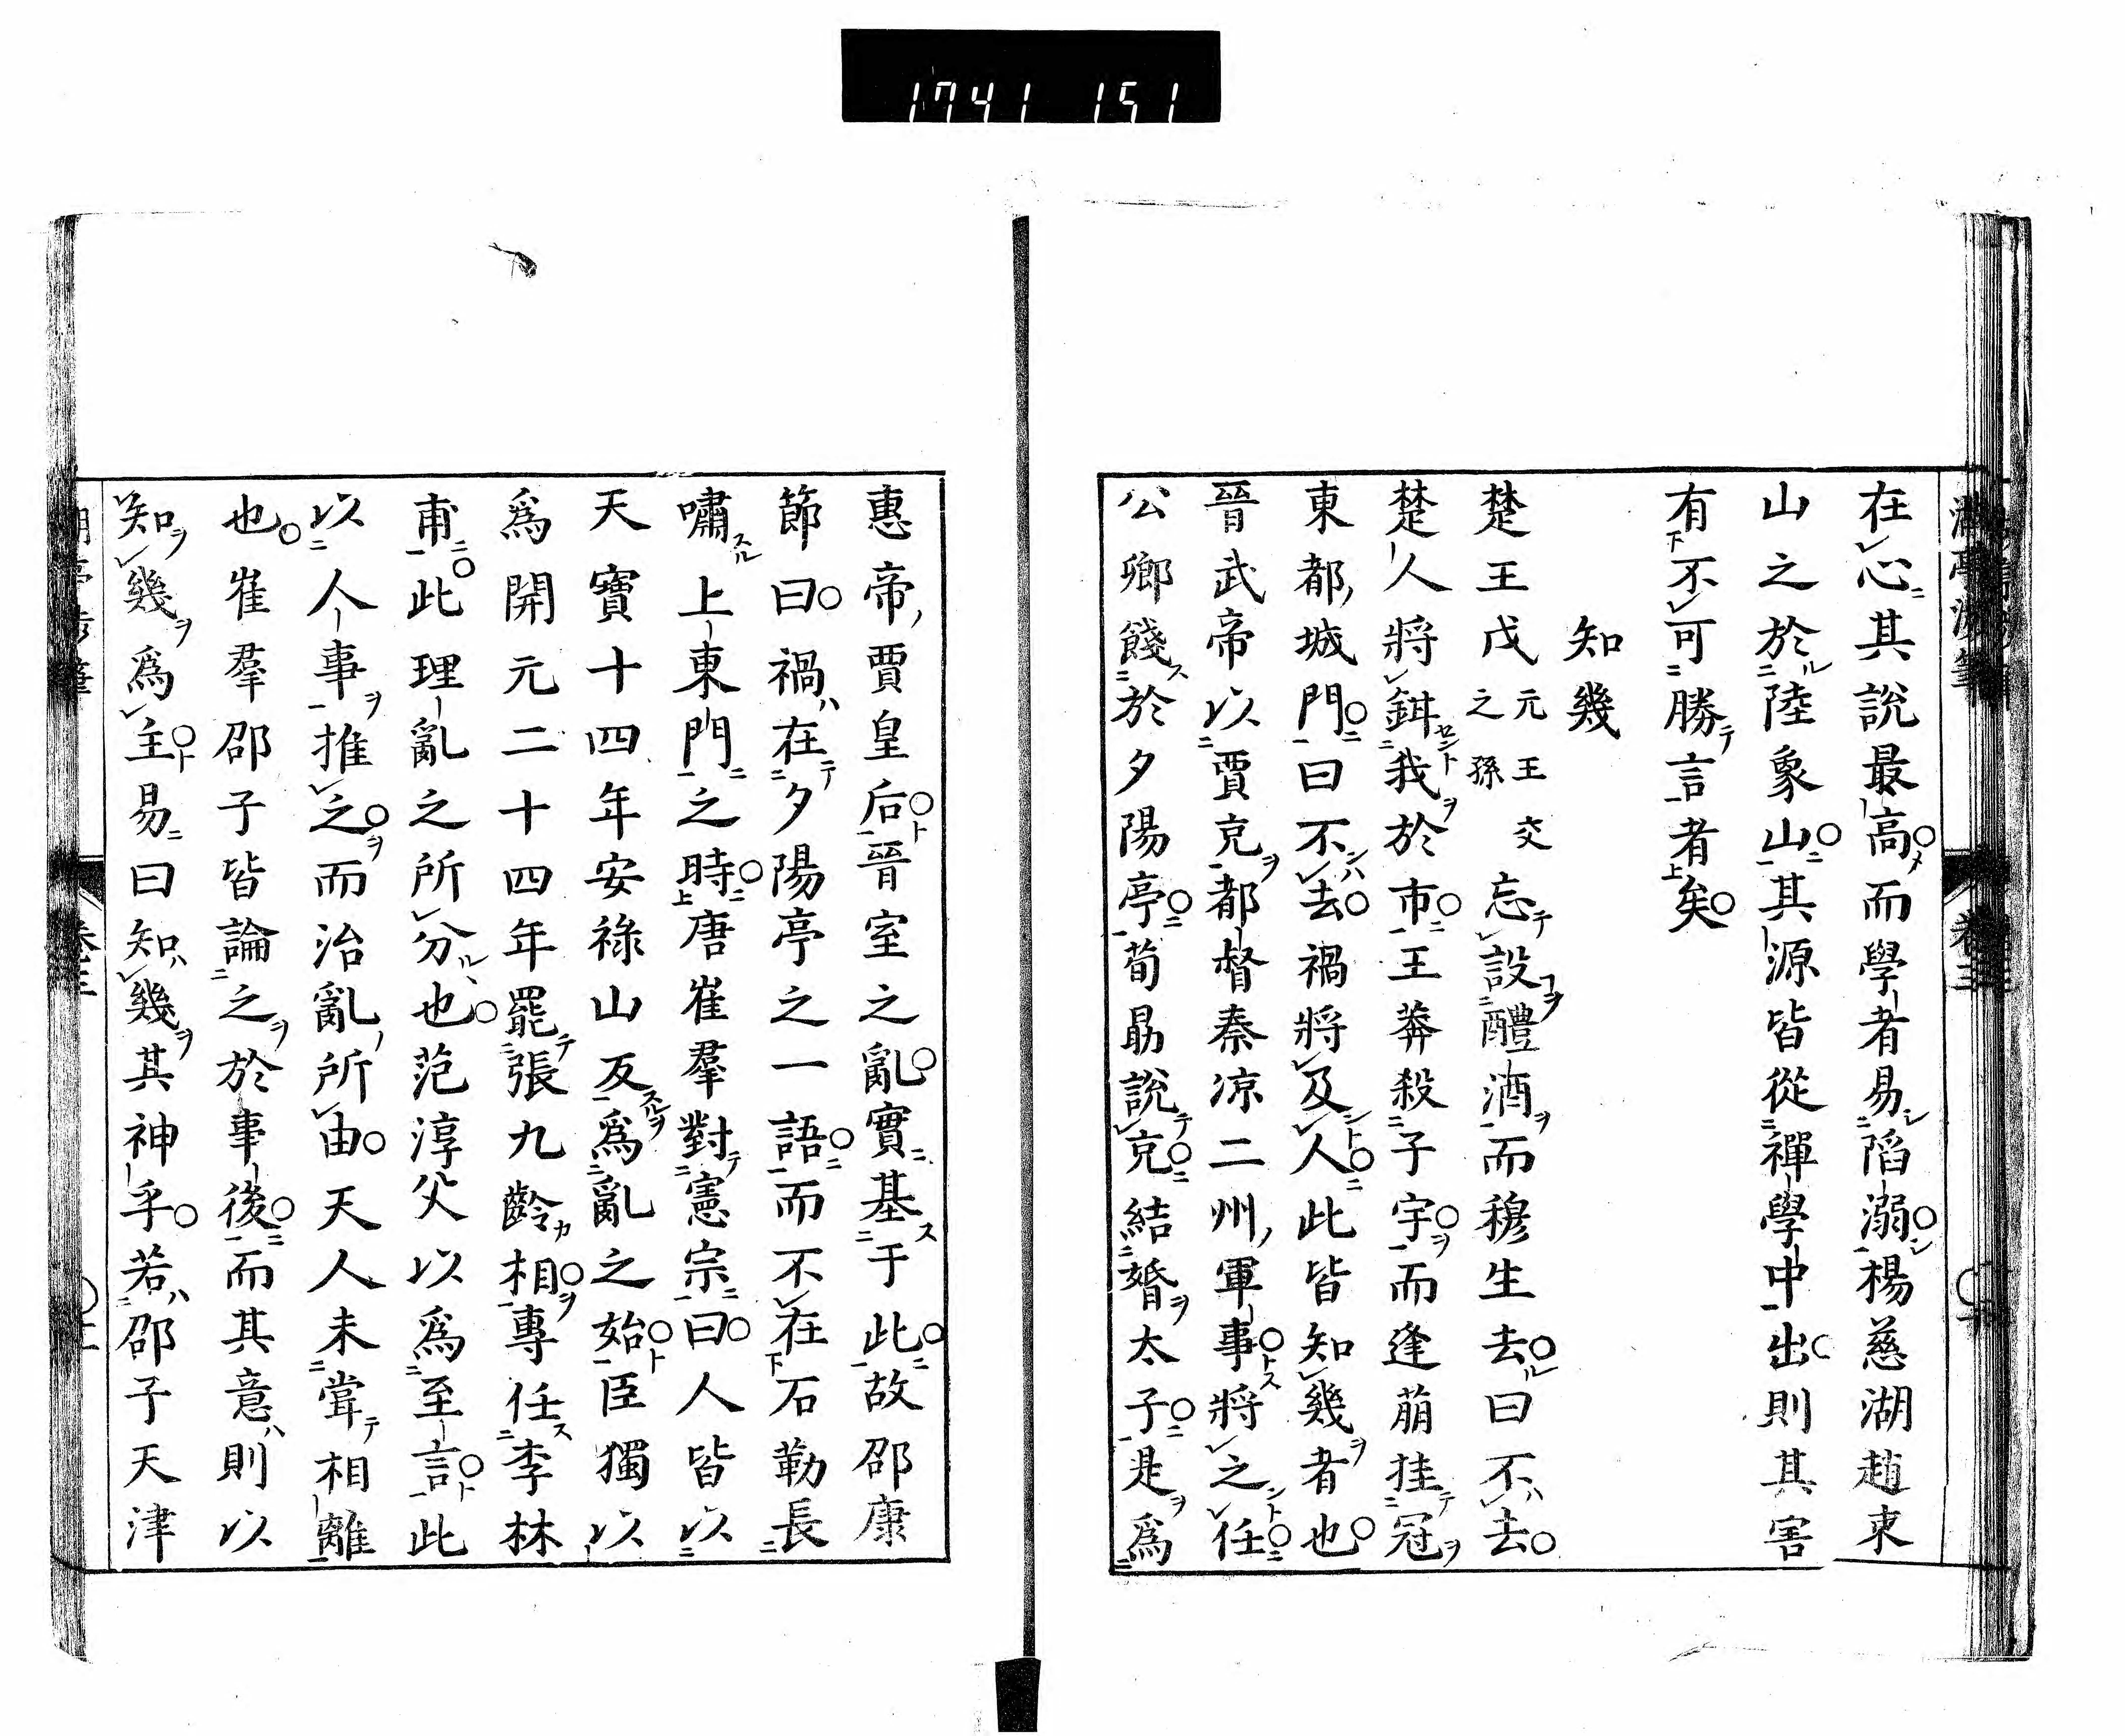 1741 151
在心其說最高而學者易陷溺楊慈湖趙東
山之於陸象山其源皆從禪學中出則其害
有不可勝言者矣
知幾
楚王戊元王交之孫忘設醴酒而穆生去曰不去
楚人將鉗我於市王莽殺子宇而逢萠挂冠
東都城門曰不去禍將及人此皆知幾者也
晉武帝以賈充都督秦凉二州軍事將之任
公卿餞於夕陽亭荀勗說充結婚太子是爲
惠帝賈皇后晉室之亂實基于此故邵康
節曰禍在夕陽亭之一語而不在石勒長
嘯上東門之時唐崔羣對憲宗曰人皆以
天寶十四年安祿山反爲亂之始臣獨以
爲開元二十四年罷張九齡相專任李林
甫此理亂之所分也范淳父以爲至言此
以人事推之而治亂所由天人未甞相離
也崔羣邵子皆論之於事後而其意則以
知幾爲主易曰知幾其神乎若邵子天津